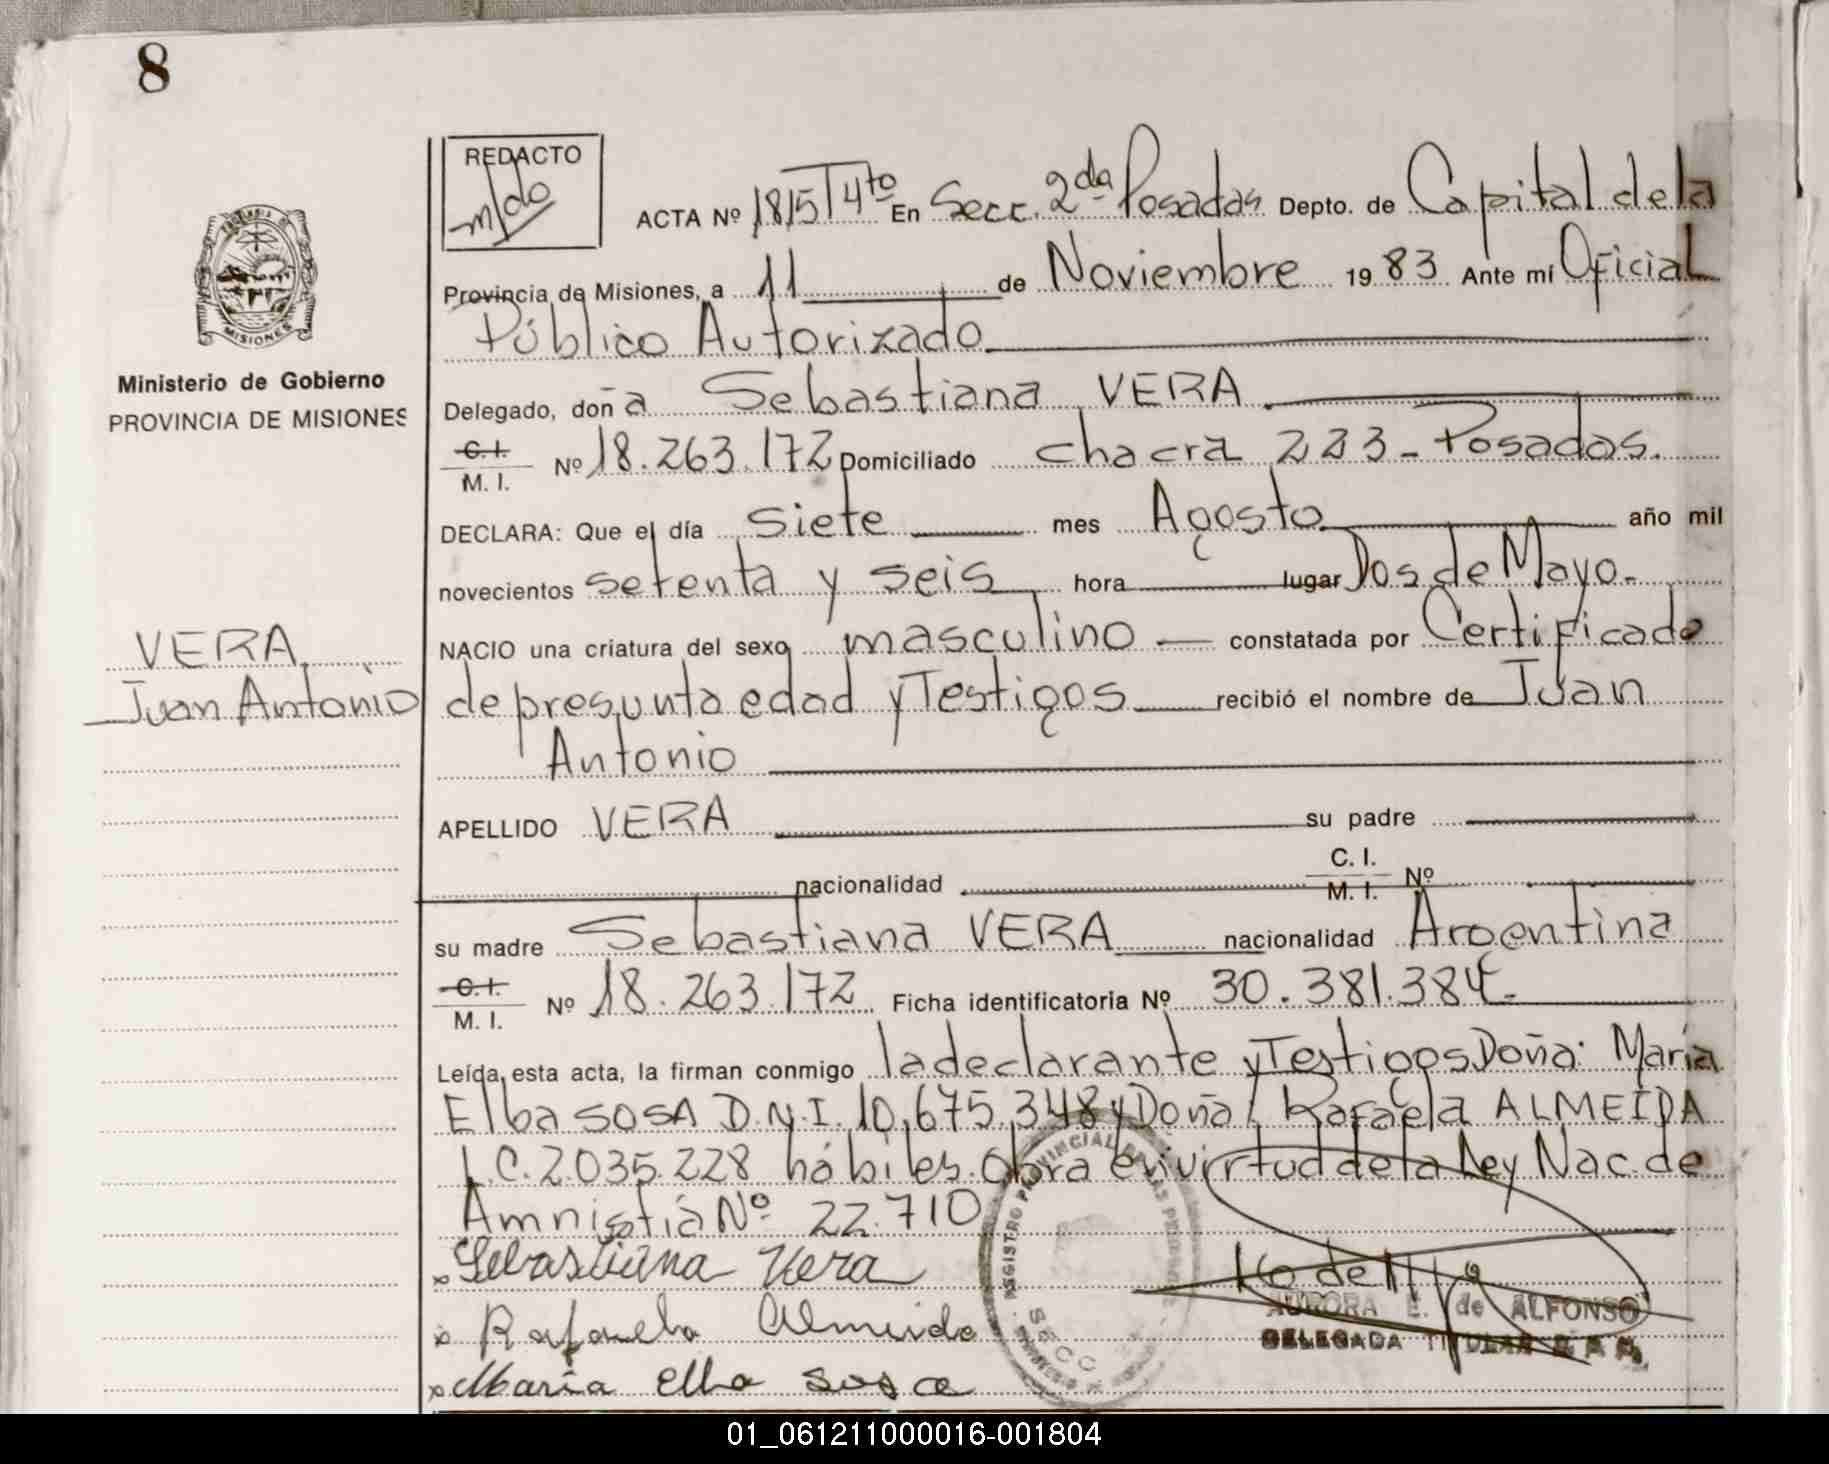 8
REDACTO
m/do
ACTA Nº 1815 T 4to En Secc. 2da Posadas Depto. de Capital de la
Provincia de Misiones, a 11 de Noviembre 19 83 Ante mí Oficial
Público Autorizado
MISIONES
Ministerio de Gobierno
PROVINCIA DE MISIONES
Delegado, doña Sebastiana VERA
C.I.
M. I. Nº 18.263.172 Domiciliado chacra 223 - Posadas.
DECLARA: Que el día siete mes Agosto año mil
novecientos setenta y seis hora lugar Dos de Mayo.
NACIO una criatura del sexo masculino constatada por Certificado
VERA,
Juan Antonio
de presunta edad y Testigos recibió el nombre de Juan
Antonio
APELLIDO VERA su padre
nacionalidad C. I. M. I. Nº
su madre Sebastiana VERA nacionalidad Argentina
C.I.
M. I. Nº 18.263.172 Ficha identificatoria Nº 30.381.384.-
Leída esta acta, la firman conmigo la declarante y Testigos Doña: María
Elba SOSA D.N.I. 10.675.348 y Doña: Rafaela ALMEIDA
L.C. 2.035.228 hábiles. Obra en virtud de la Ley Nac. de
Amnistia Nº 22.710
x Sebastiana Vera
x Rafaela Almeida
x Maria elba sosa
REGISTRO PROVINCIAL DE LAS PERSONAS
SECC
AURORA E. de ALFONSO
DELEGADA TITULAR R.P.P.
01_061211000016-001804